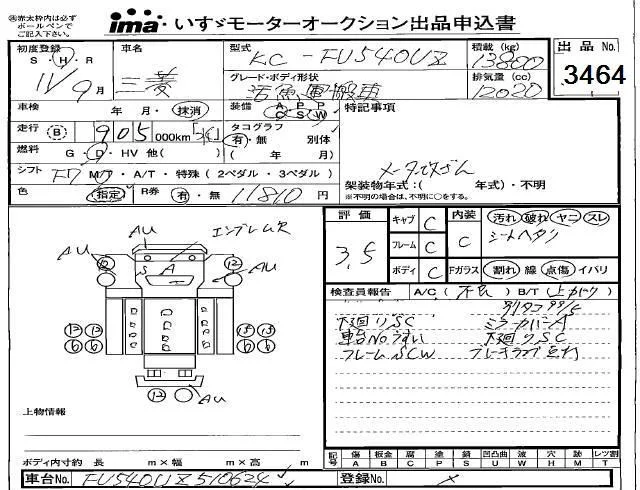 ㊟赤太枠内は必ず
ボールペンでご
記入ください。
ima いすゞモーターオークション出品申込書
初度登録 S・H・R 11/9月
車名 三菱
型式 KC-FU540UZ
積載(kg) 13800
出品No. 3464
グレード・ボディ形状 活魚運搬
排気量(cc) 12020
車検 年 月・抹消
装備 AC PS PW
特記事項
走行 B 905,000km
タコグラフ 有・無 別体
燃料 G・D・HV 他( )
( 年 月)
メータ改ざん
シフト F7 M/T・A/T・特殊(2ペダル・3ペダル)
架装物年式:( 年式)・不明
※不明の場合は、不明に○をする。
色 指定
R券 有・無 11810円
評価 3.5
キャブ C
内装 C
汚れ 破れ ヤニ スレ
シートヘタリ
フレーム C
ボディ C
Fガラス 割れ 線 点傷 イバリ
エンブレム欠
AU AU AU AU
S A
検査員報告 A/C(不良) B/T(上カバック)
下廻りSC
車台No.うすい
フレームSCW
ミラーカバーA
下廻りSC
上物情報
ボディ内寸約 長 m×幅 m×高 m
記号 傷A 板金B 腐C 塗P 錆S 凹凸曲U 波W 穴H 跡M レツ割T
車台No. FU540UZ510624
登録No. ×